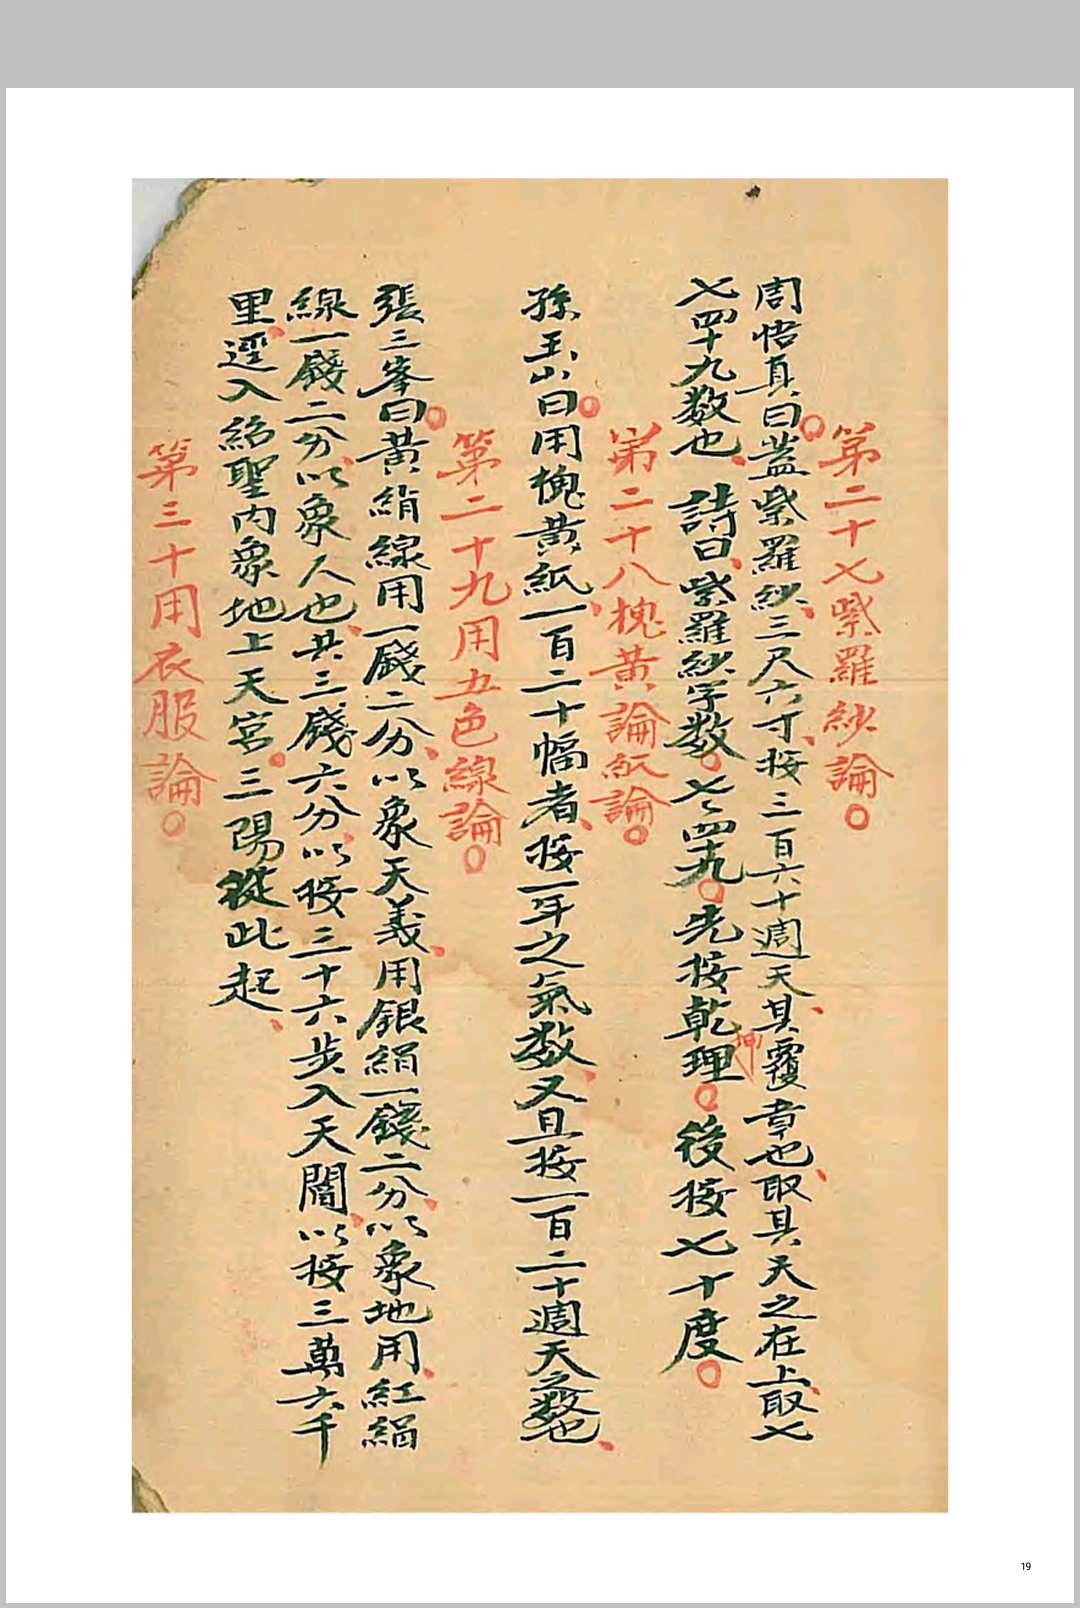 第二十七紫羅紗論○
周悟真曰蓋紫羅紗三尺六寸按三百六十週天其覆章也取其天之在上取七
七四十九数也詩曰紫羅紗字数七々四十九先按乾理後按七十度
押
第二十八槐黄論紙論○
孫玉山曰用槐黄紙一百二十幅者按一年之氣数又且按一百二十週天之数也
第二十九用五色線論○
張三峯曰黄絹線用一錢二分以象天義用銀絹一錢二分以象地用紅絹
線一錢二分以象人也共三錢六分以按三十六步入天閣以按三萬六千
里逕入給聖内象地上天宮三陽從此起
第三十用衣服論○
19